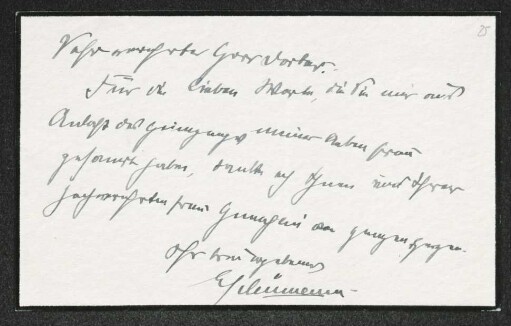 25
Sehr verehrter Herr Doktor!
Für die lieben Worte, die Sie mir aus
Anlaß des Heimgangs meiner lieben Frau
gesandt haben, danke ich Ihnen und Ihrer
hochverehrten Frau Gemahlin von ganzem Herzen.
Ihr treu ergebener